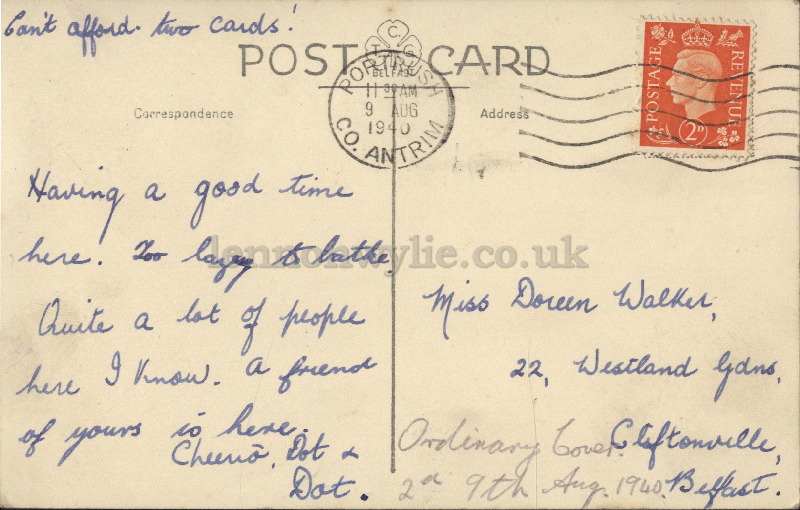 Can't afford two cards!
POST CARD
C
T G
BELFAST
PORTRUSH
11 30 AM
9 AUG
1940
CO. ANTRIM
POSTAGE
REVENUE
2D
Correspondence
Address
Having a good time
here. Too lazey to bathe.
Quite a lot of people
here I know. A friend
of yours is here.
Cheerio, Dot &
Dot.
lennonwylie.co.uk
Miss Doreen Walker,
22, Westland Gdns,
Cliftonville,
Belfast.
Ordinary Cover.
2d 9th Aug. 1940.